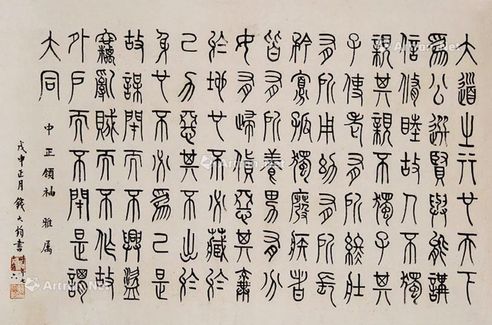 大道之行也天下
為公選賢與能講
信修睦故人不獨
親其親不獨子其
子使老有所終壯
有所用幼有所長
矜寡孤獨廢疾者
皆有所養男有分
女有歸貨惡其棄
於地也不必藏於
己力惡其不出於
身也不必為己是
故謀閉而不興盜
竊亂賊而不作故
外戶而不閉是謂
大同
中正領袖 雅属
戊申正月 錢大鈞書